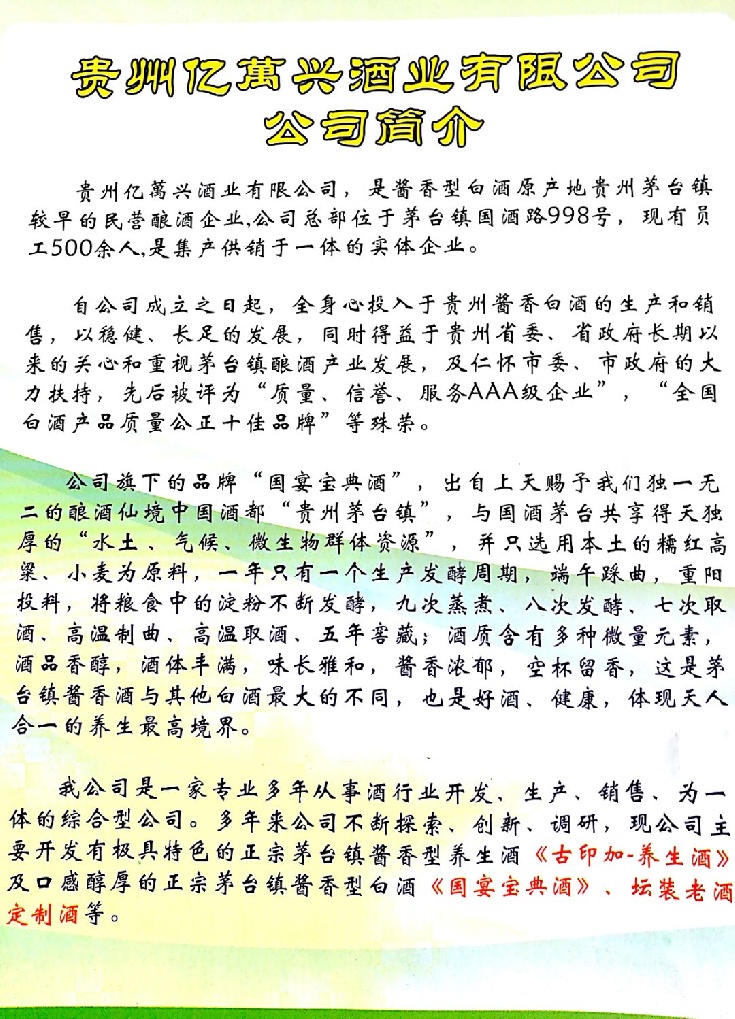 贵州亿萬兴酒业有限公司
公司简介
贵州亿萬兴酒业有限公司，是酱香型白酒原产地贵州茅台镇
较早的民营酿酒企业,公司总部位于茅台镇国酒路998号，现有员
工500余人,是集产供销于一体的实体企业。
自公司成立之日起，全身心投入于贵州酱香白酒的生产和销
售，以稳健、长足的发展，同时得益于贵州省委、省政府长期以
来的关心和重视茅台镇酿酒产业发展，及仁怀市委、市政府的大
力扶持，先后被评为“质量、信誉、服务AAA级企业”，“全国
白酒产品质量公正十佳品牌”等殊荣。
公司旗下的品牌“国宴宝典酒”，出自上天赐予我们独一无
二的酿酒仙境中国酒都“贵州茅台镇”，与国酒茅台共享得天独
厚的“水土、气候、微生物群体资源”，并只选用本土的糯红高
粱、小麦为原料，一年只有一个生产发酵周期，端午踩曲，重阳
投料，将粮食中的淀粉不断发酵，九次蒸煮、八次发酵、七次取
酒、高温制曲、高温取酒、五年窖藏；酒质含有多种微量元素，
酒品香醇，酒体丰满，味长雅和，酱香浓郁，空杯留香，这是茅
台镇酱香酒与其他白酒最大的不同，也是好酒、健康，体现天人
合一的养生最高境界。
我公司是一家专业多年从事酒行业开发、生产、销售、为一
体的综合型公司。多年来公司不断探索、创新、调研，现公司主
要开发有极具特色的正宗茅台镇酱香型养生酒《古印加-养生酒》
及口感醇厚的正宗茅台镇酱香型白酒《国宴宝典酒》、坛装老酒
定制酒等。